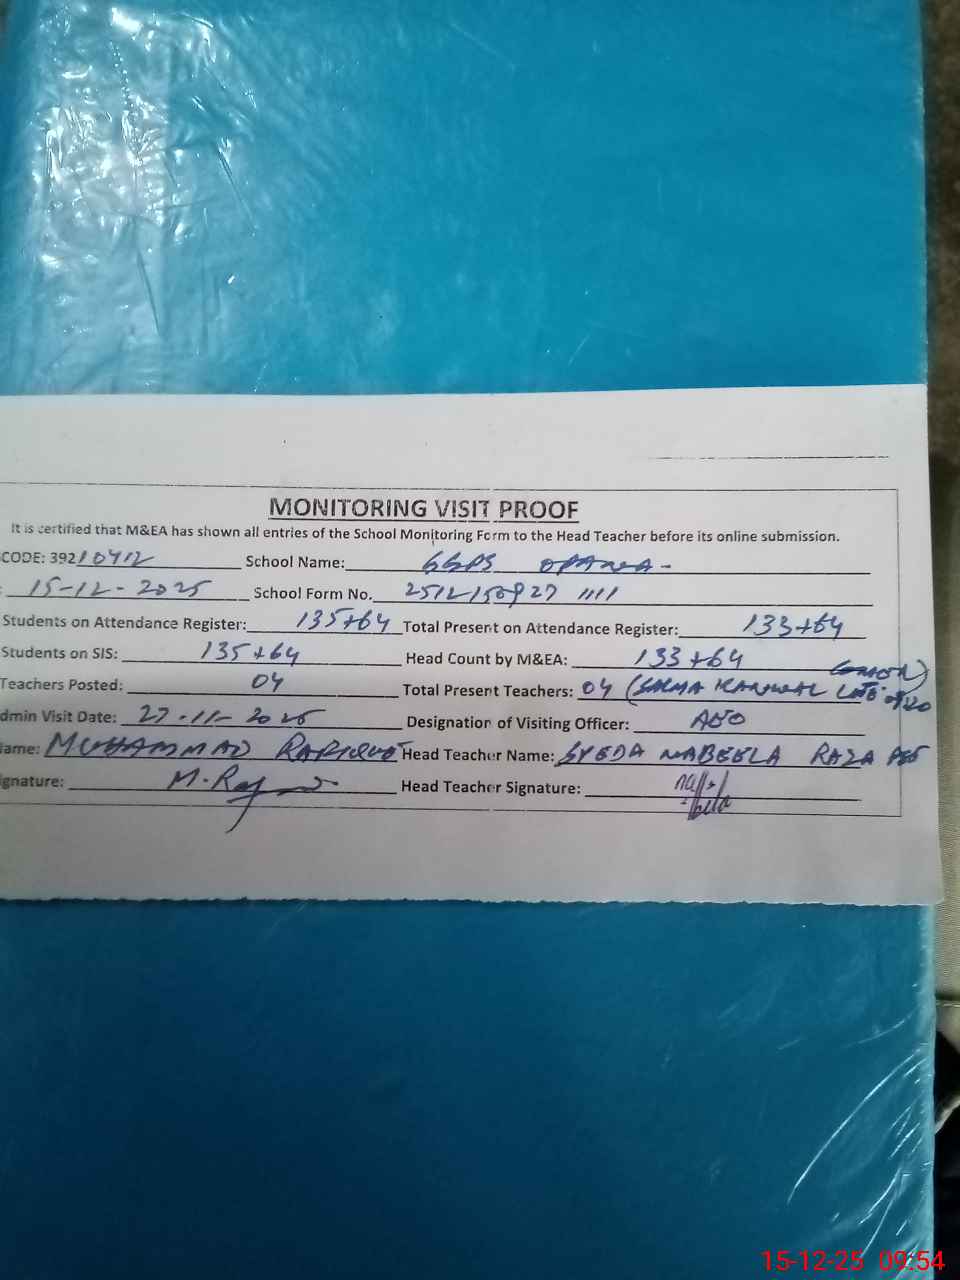 MONITORING VISIT PROOF
It is certified that M&EA has shown all entries of the School Monitoring Form to the Head Teacher before its online submission.
CODE: 39210412 School Name: GGPS
: 15-12-2025 School Form No.
Students on Attendance Register: 135+64 Total Present on Attendance Register: 133+64
Students on SIS: 135+64 Head Count by M&EA: 133+64
Teachers Posted: 04 Total Present Teachers: 04 (SALMA KANWAL LATE
dmin Visit Date: 27-11-2025 Designation of Visiting Officer: AEO
ame: MUHAMMAD Head Teacher Name: SYEDA NABEELA RAZA
gnature: Head Teacher Signature:
15-12-25 09:54